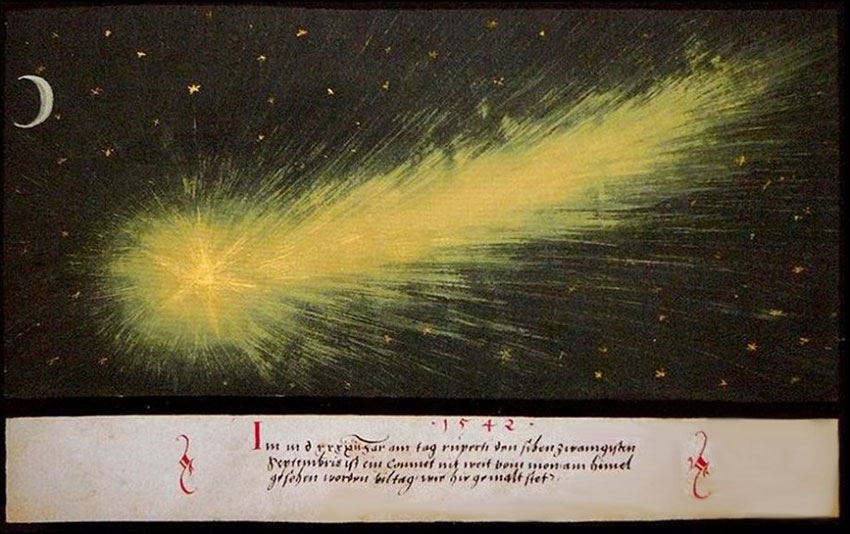 · 1 5 4 2 ·
Im m d xxxxii Jar am tag ruperti den sibenzwaingisten
Septembris ist ein Comet nit weit vom mon am himel
gesehen worden vil tag wie hir gemalt stet